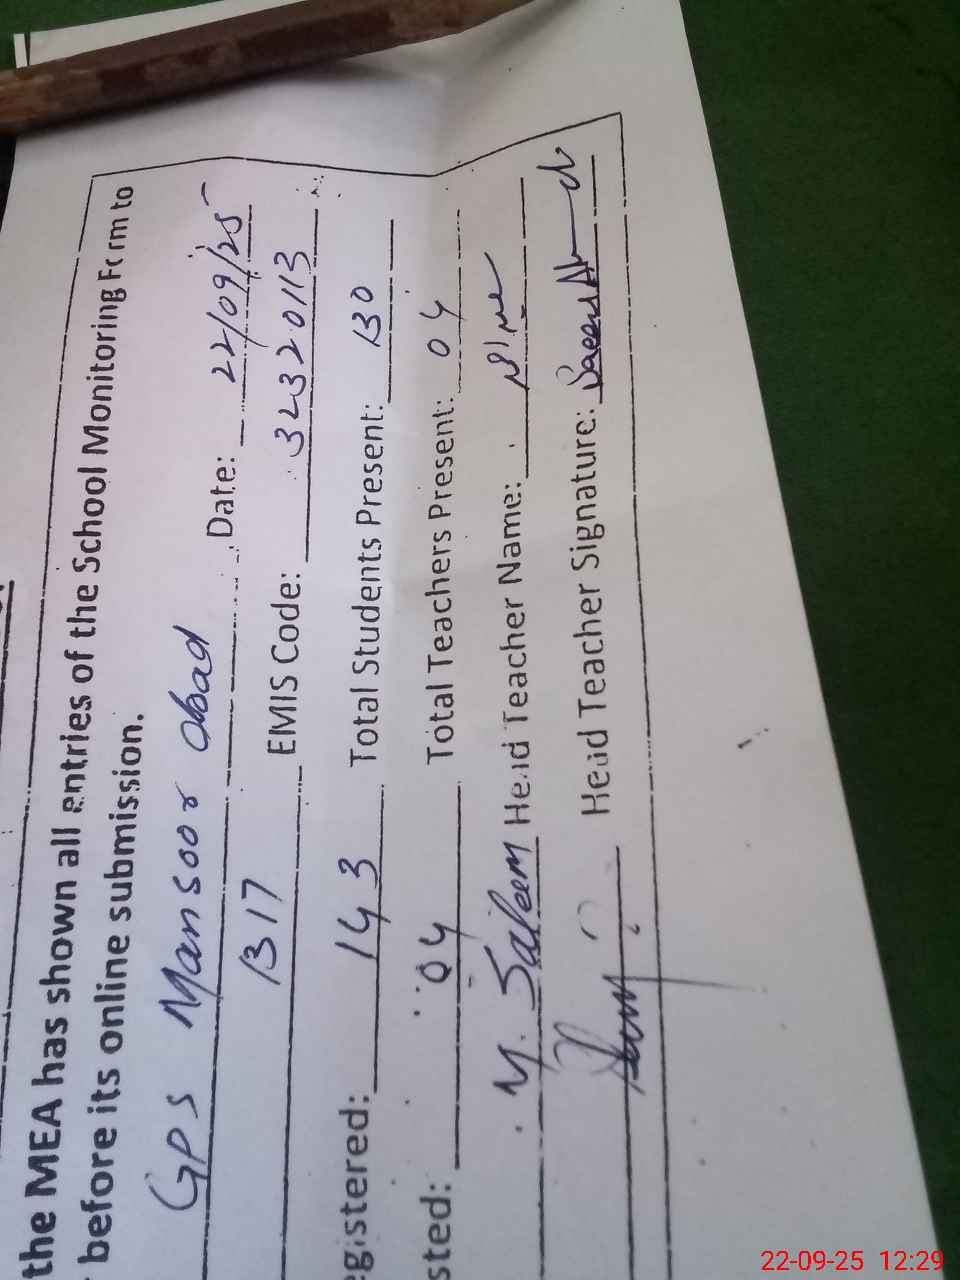 the MEA has shown all entries of the School Monitoring Form to
before its online submission.
GPS Mansoor abad Date: 22/09/25
1317 EMIS Code: 32320113
egistered: 143 Total Students Present: 130
sted: 04 Total Teachers Present: 04
M. Saleem Head Teacher Name:
Head Teacher Signature:
22-09-25 12:29